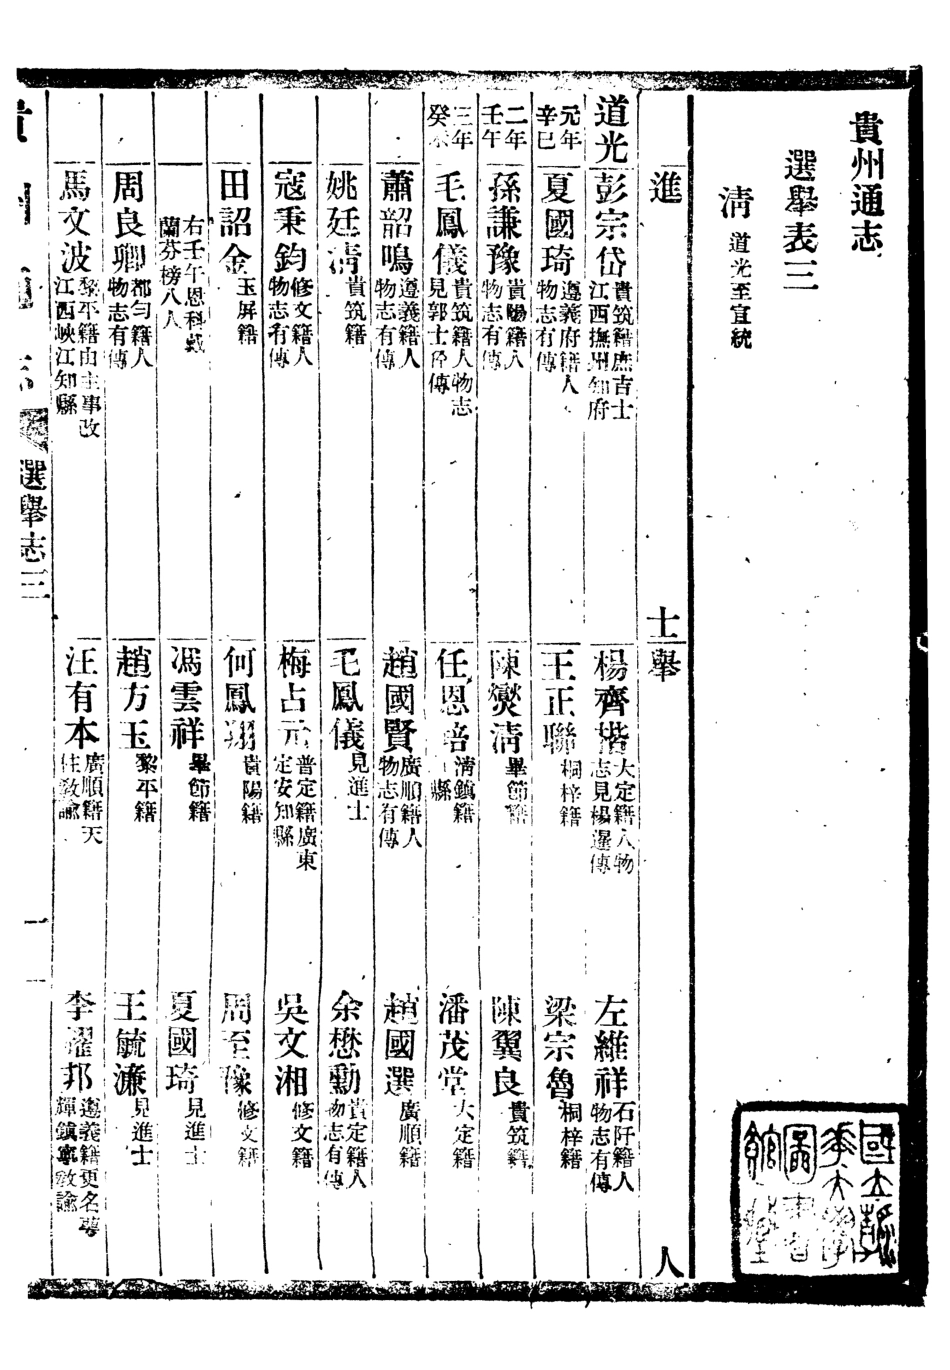 貴州通志
選舉表三
清 道光至宣統
進士 舉人
道光 彭宗岱 貴筑籍庶吉士江西撫州知府 楊齊 大定籍人物志見楊暹傳 左維祥 石阡籍人物志有傳
元年辛巳 夏國琦 遵義府籍人物志有傳 王正聯 桐梓籍 梁宗魯 桐梓籍
二年壬午 孫謙豫 貴陽籍人物志有傳 陳爕清 畢節籍 陳翼良 貴筑籍
三年癸未 毛鳳儀 貴筑籍人物志見郭士 傳 任恩培 清鎮籍 縣 潘茂堂 大定籍
蕭韶鳴 遵義籍人物志有傳 趙國賢 廣順籍人物志有傳 趙國選 廣順籍
姚廷清 貴筑籍 毛鳳儀 見進士 余懋勳 貴定籍人物志有傳
寇秉鈞 修文籍人物志有傳 梅占元 普定籍廣東定安知縣 吳文湘 修文籍
田詔金 玉屏籍 何鳳翔 貴陽籍 周至豫 修文籍
右壬午恩科戴蘭芬榜八人 馮雲祥 畢節籍 夏國琦 見進士
周良卿 都勻籍人物志有傳 趙方玉 黎平籍 王毓濂 見進士
馬文波 黎平籍由主事改江西峽江知縣 汪有本 廣順籍天柱教諭 李耀邦 遵義籍更名 輝鎮寧教諭
貴州通志 選舉志三 一
國立清華大學圖書館藏